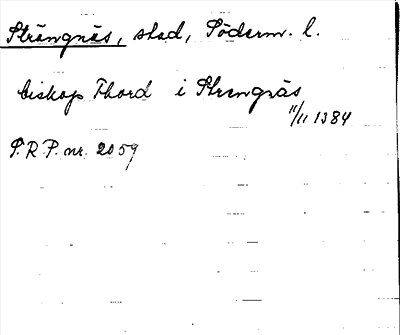 Strängnäs, stad, Söderm. l.
biskop Thord i Strengnäs
11/11 1384
S.R.P. nr. 2059